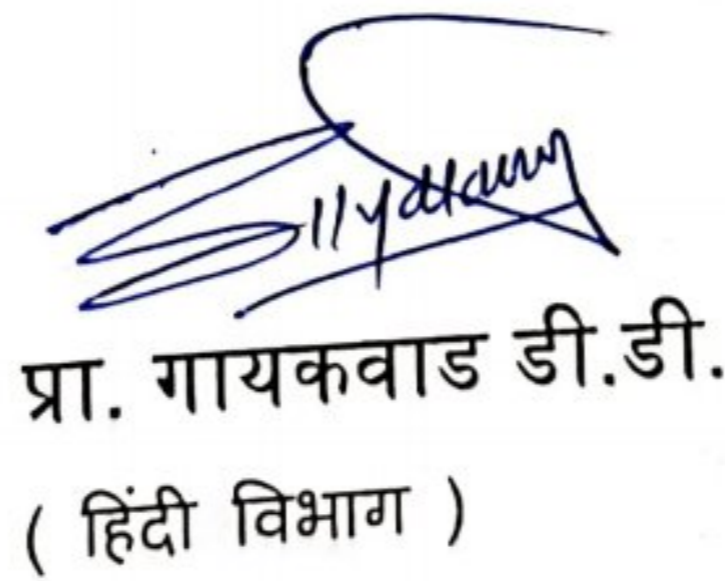 प्रा. गायकवाड डी.डी.
( हिंदी विभाग )